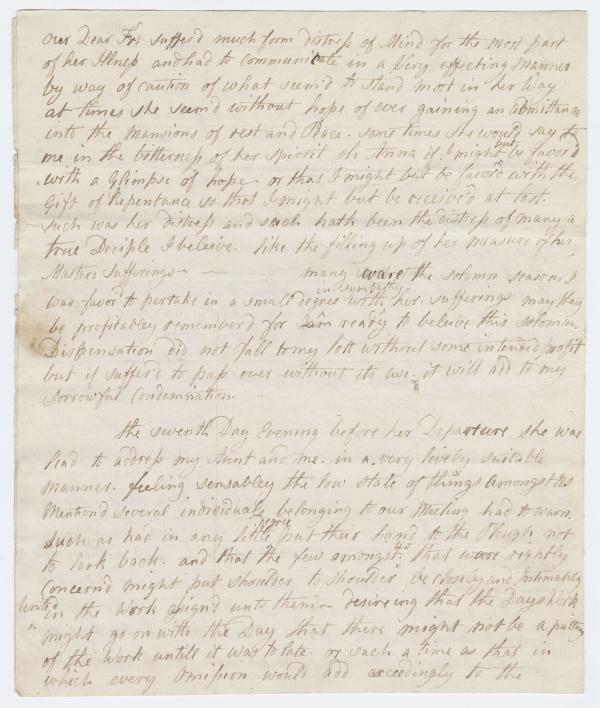 Our Dear Frd sufferd much form distress of Mind for the most part
of her Illness and had to communicate in a Very effecting Manner
by way of caution of what seem'd to stand most in her Way
at times she seem'd without hope of ever gaining an admittance
into the Mansions of rest and Peace. some times she would say to
me in the bitterness of her Spirrit oh Anna if I might but be favor'd
with a Glimpse of hope or that I might but be favor'd with the
Gift of Repentance so that I might but be receiv'd at last.
Such was her distress and such hath been the distress of many a
true Deciple I beleive. like the filling up of her measure of her
Masters Sufferings — — many ware the solomn seasons I
was favor'd to pertake in a small degree in sympathy with her sufferings may they
be profitabley remember'd for I am ready to beleive this solomn
Dispensation did not fall to my lott without some intended profit
but if suffer'd to pass over without its use. it will add to my
sorrowful Condemnation
the seventh Day Evening before her Departure she was
lead to address my Aunt and me in a very lively suitable
manner. feeling sensabley the low state of things amongst us
Mentiond several individuals belonging to our Meeting had to warn
such as had in any little degree put their hand to the Plough not
to look back. and that the few amongst us that were rightly
Concern'd might put shoulder to shoulder be closely and Intimately
United in the Work asign'd unto them — desireing that the Days Work
might go on with the Day that there might not be a putting
of the Work untill it was to late. or such a time as that in
which every Omission would add exceedingly to the